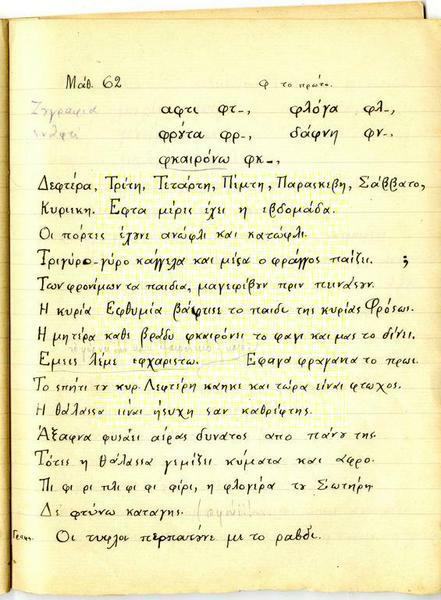 Μάθ. 62 φ το πρώτο.
Ζηγραφια αφτι φτ-, φλόγα φλ-,
φρύτα φρ-, δάφνη φν-,
φκαιρόνω φκ-,
Δεφτέρα, Τρίτη, Τετάρτη, Πέμτη, Παρασκεβη, Σάββατο,
Κυριεκη. Εφτα μέρις έχει η εβδομάδα.
Οι πόρτες έχυνε ανώφλι και κατώφλι.
Τριγύρο-γύρο κάγγελα και μέσα ο φράγγος παίζει. ;
Των φρονίμων τα παιδια, μαγειρέβυν πριν πεινάσυν.
Η κυρία Εφθυμία βάφτισε το παιδι της κυρίας Φρόσως.
Η μητέρα καθε βράδυ φκαιρόνει το φαγι και μας το δίνει.
Εμεις λέμε εφχαριστω. Εφαγα φραγανα το πρωι.
Το σπήτι τυ κυρ. Λεφτέρη κάηκε και τώρα είναι φτωχος.
Η θάλασσα είναι ήσυχη σαν καθρέφτης.
Άξαφνα φυσάει αέρας δυνατος απο πάνυ της.
Τότες η θάλασσα γεμίζει κύματα και αφρο.
Πι φι ρι πλι φι φι φίρι, η φλογέρα τυ Σωτήρη.
Δε φτύνω καταγης.
Οι τυφλοι περπατύνε με το ραβδι.